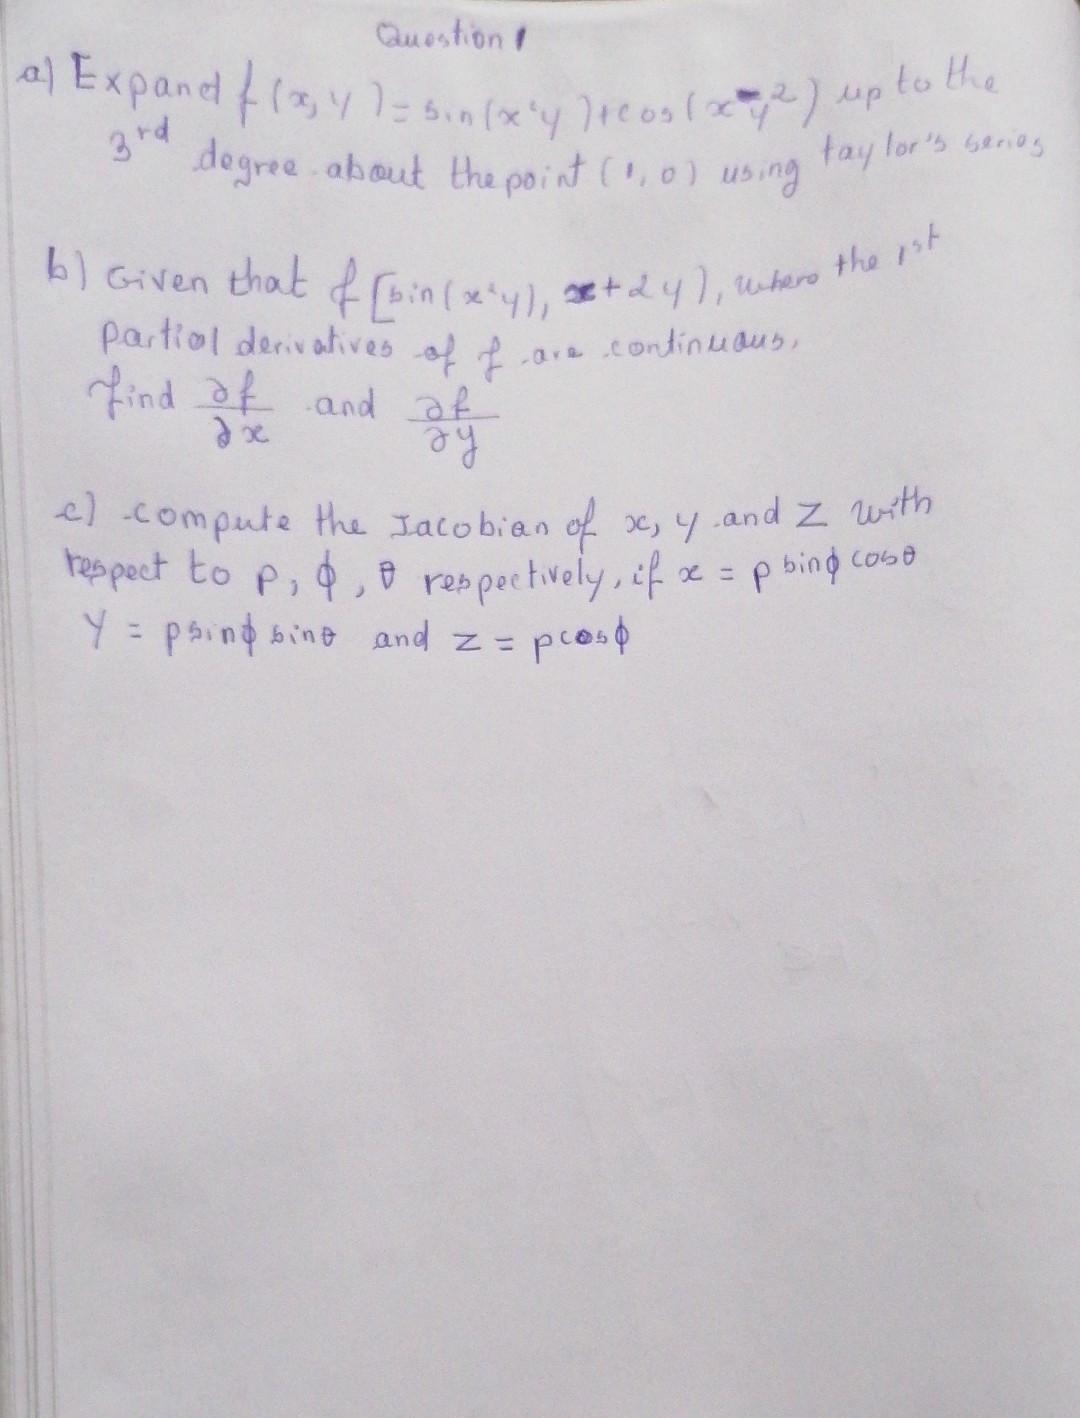 Question 1
a) Expand f(x, y) = sin(x²y) + cos(xy²) up to the
3rd degree about the point (1, 0) using taylor's series
b) Given that f[sin(x²y), x+2y), where the 1st
partial derivatives of f are continuous,
find ∂f/∂x and ∂f/∂y
c) compute the Jacobian of x, y and z with
respect to ρ, ϕ, θ respectively, if x = ρ sinϕ cosθ
y = ρsinϕ sinθ and z = ρcosϕ